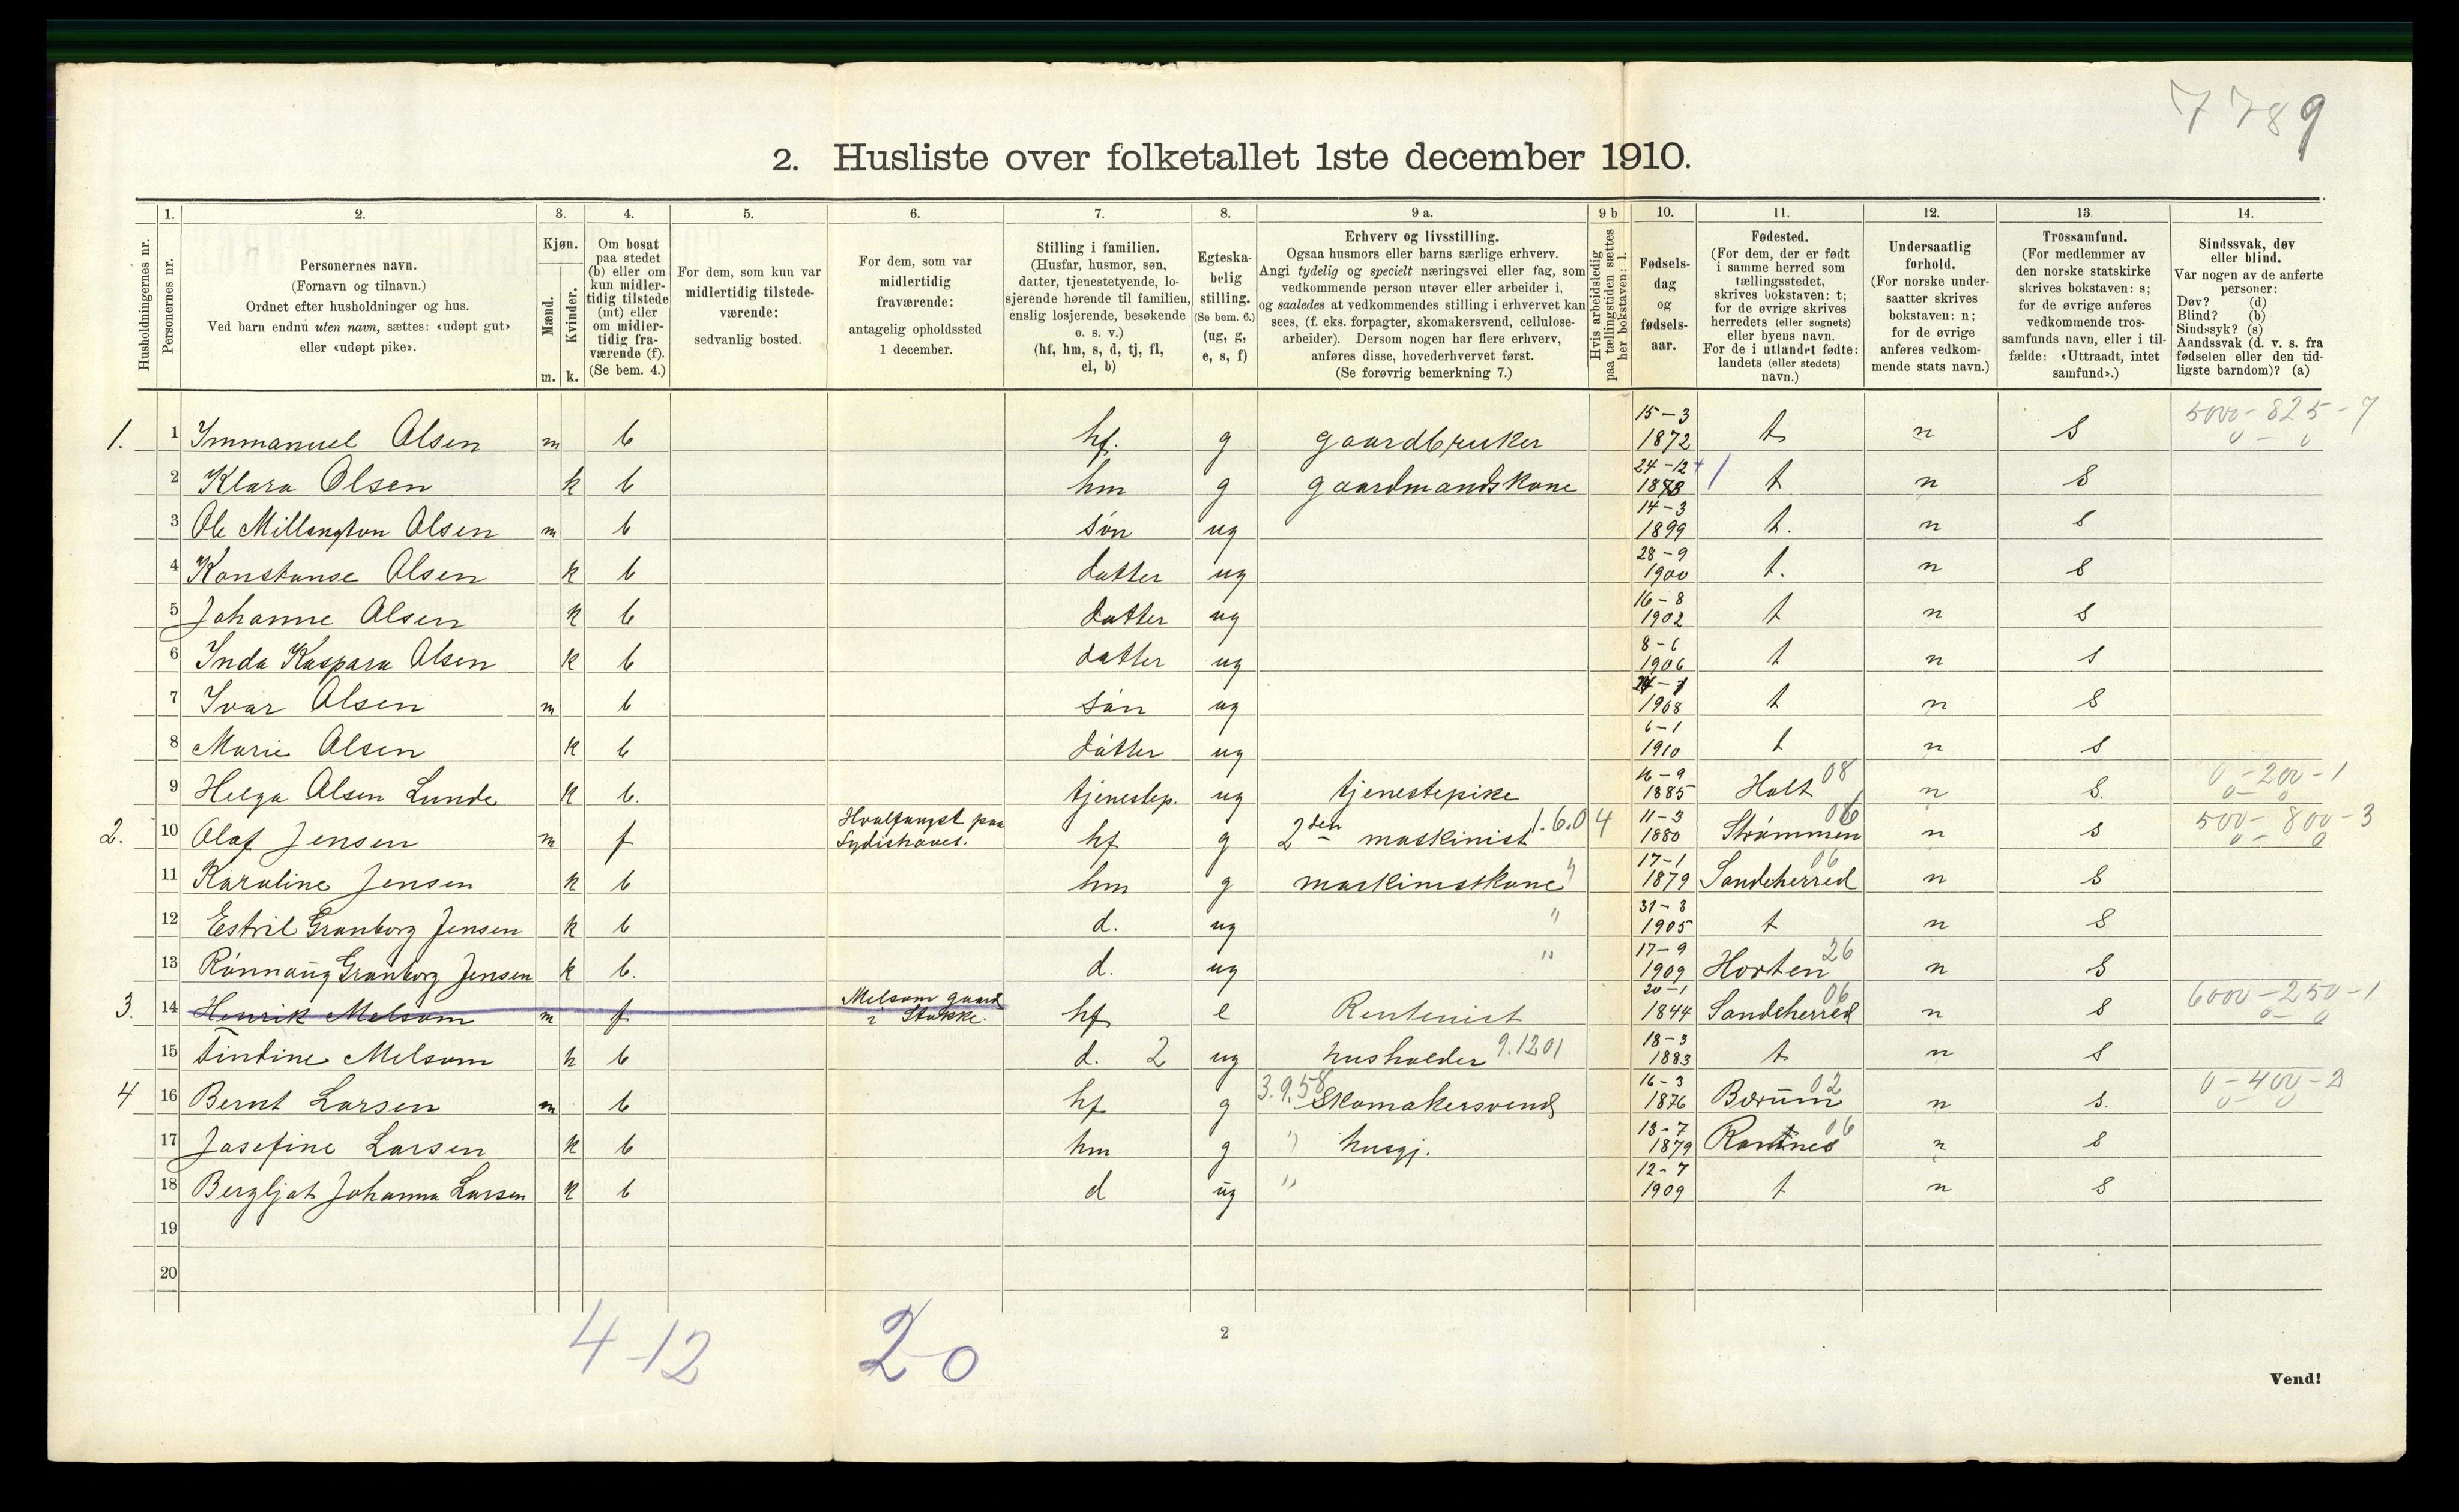 7789
2. Husliste over folketallet 1ste december 1910.
Husholdningernes nr.
1. Personernes nr.
2. Personernes navn.
(Fornavn og tilnavn.)
Ordnet efter husholdninger og hus.
Ved barn endnu uten navn, sættes: «udøpt gut»
eller «udøpt pike».
3. Kjøn.
Mænd. Kvinder.
m. k.
4. Om bosat
paa stedet
(b) eller om
kun midler-
tidig tilstede
(mt) eller
om midler-
tidig fra-
værende (f).
(Se bem. 4.)
5. For dem, som kun var
midlertidig tilstede-
værende:
sedvanlig bosted.
6. For dem, som var
midlertidig
fraværende:
antagelig opholdssted
1 december.
7. Stilling i familien.
(Husfar, husmor, søn,
datter, tjenestetyende, lo-
sjerende hørende til familien,
enslig losjerende, besøkende
o. s. v.)
(hf, hm, s, d, tj, fl,
el, b)
8. Egteska-
belig
stilling.
(Se bem. 6.)
(ug, g,
e, s, f)
9 a. Erhverv og livsstilling.
Ogsaa husmors eller barns særlige erhverv.
Angi tydelig og specielt næringsvei eller fag, som
vedkommende person utøver eller arbeider i,
og saaledes at vedkommendes stilling i erhvervet kan
sees, (f. eks. forpagter, skomakersvend, cellulose-
arbeider). Dersom nogen har flere erhverv,
anføres disse, hovederhvervet først.
(Se forøvrig bemerkning 7.)
9 b Hvis arbeidsledig
paa tællingstiden sættes
her bokstaven: l.
10. Fødsels-
dag
og
fødsels-
aar.
11. Fødested.
(For dem, der er født
i samme herred som
tællingsstedet,
skrives bokstaven: t;
for de øvrige skrives
herredets (eller sognets)
eller byens navn.
For de i utlandet fødte:
landets (eller stedets)
navn.)
12. Undersaatlig
forhold.
(For norske under-
saatter skrives
bokstaven: n;
for de øvrige
anføres vedkom-
mende stats navn.)
13. Trossamfund.
(For medlemmer av
den norske statskirke
skrives bokstaven: s;
for de øvrige anføres
vedkommende tros-
samfunds navn, eller i til-
fælde: «Uttraadt, intet
samfund».)
14. Sindssvak, døv
eller blind.
Var nogen av de anførte
personer:
Døv? (d)
Blind? (b)
Sindssyk? (s)
Aandssvak (d. v. s. fra
fødselen eller den tid-
ligste barndom)? (a)
1. 1 Immanuel Olsen m b hf. g gaardbruker 15-3 1872 t n s 5000-825-7 0-0
2 Klara Olsen k b hm g gaardmandskone 24-12 1878 t n s
3 Ole Millington Olsen m b søn ug 14-3 1899 t. n s
4 Konstanse Olsen k b datter ug 28-9 1900 t. n s
5 Johanne Olsen k b datter ug 16-8 1902 t n s
6 Inda Kaspara Olsen k b datter ug 8-6 1906 t n s
7 Ivar Olsen m b søn ug 1908 t n s
8 Marie Olsen k b datter ug 6-1 1910 t n s
9 Helga Olsen Lunde k b. tjenestep. ug tjenestepike 16-9 1885 Holt 08 n s. 0-200-1 0-0
2. 10 Olaf Jensen m f Hvalfangst paa Sydishavet. hf g 2den maskinist 1.6.04 11-3 1880 Strømmen 06 n s 500-800-3 0-0
11 Karoline Jensen k b hm g maskinistkone " 17-1 1879 Sandeherred 06 n s
12 Estril Granborg Jensen k b d. ug " 31-8 1905 t n s
13 Rønnaug Granborg Jensen k b. d. ug " 17-9 1909 Horten 26 n s
3. 14 Henrik Melsom m f Melsom gaard i Stokke. hf e Rentenist 20-1 1844 Sandeherred 06 n s 6000-250-1 0-0
15 Dindine Melsom k b d. 2 ug husholder 9.1201 18-3 1883 t n s
4 16 Bernt Larsen m b hf g 3.9.58 Skomakersvend 16-3 1876 Bærum 02 n s. 0-400-2 0-0
17 Josefine Larsen k b hm g " husgj. 13-7 1879 Ramnes 06 n s
18 Bergljot Johanna Larsen k b d ug " 12-7 1909 t n s
19
20
4-12 20
2
Vend!